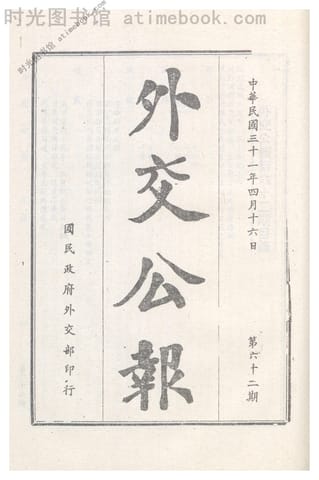 时光图书馆 www.atimebook.com
时光图书馆 atimebook.com
中華民國三十一年四月十六日
第六十二期
外交公報
國民政府外交部印行